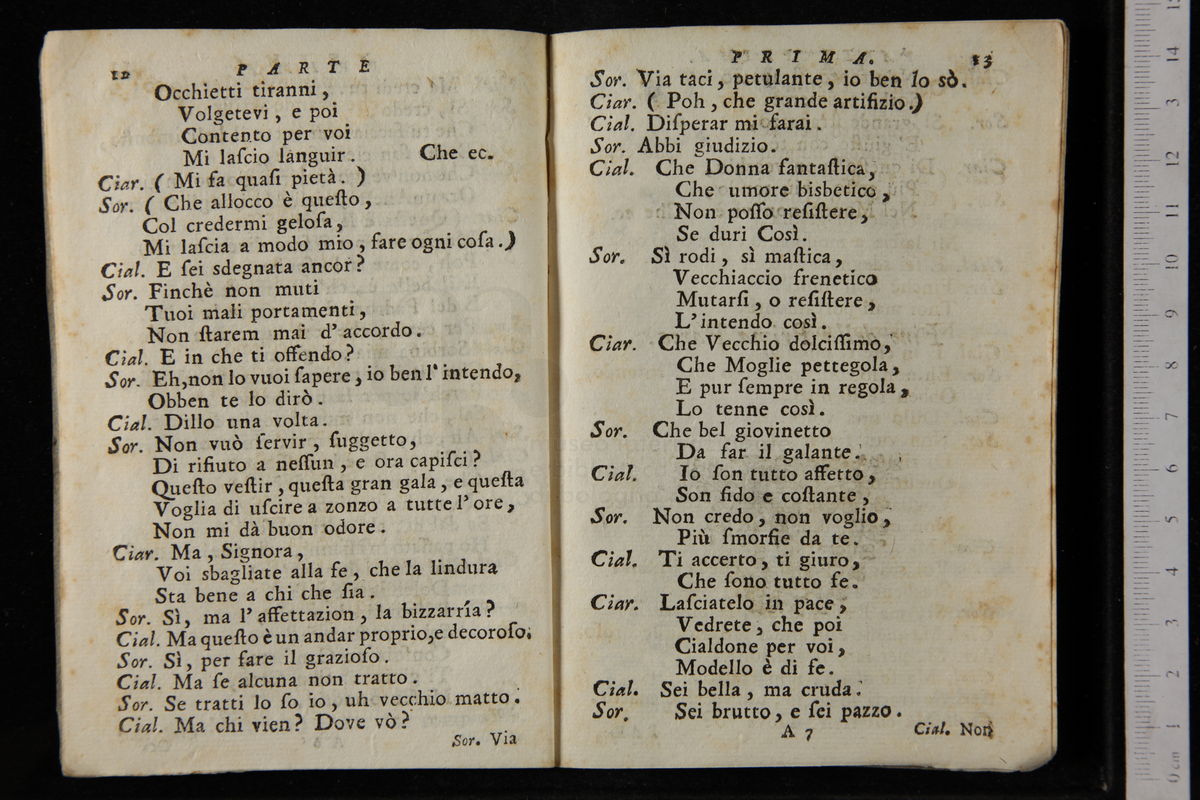 12 PARTE
Occhietti tiranni,
Volgetevi, e poi
Contento per voi
Mi laſcio languir. Che ec.
Ciar. ( Mi fa quaſi pietà. )
Sor. ( Che allocco è queſto,
Col credermi geloſa,
Mi laſcia a modo mio, fare ogni coſa.)
Cial. E ſei sdegnata ancor?
Sor. Finchè non muti
Tuoi mali portamenti,
Non ſtarem mai d'accordo.
Cial. E in che ti offendo?
Sor. Eh,non lo vuoi ſapere, io ben l'intendo,
Obben te lo dirò.
Cial. Dillo una volta.
Sor. Non vuò ſervir, ſuggetto,
Di rifiuto a neſſun, e ora capiſci?
Queſto veſtir, queſta gran gala, e queſta
Voglia di uſcire a zonzo a tutte l'ore,
Non mi dà buon odore.
Ciar. Ma, Signora,
Voi sbagliate alla fe, che la lindura
Sta bene a chi che ſia.
Sor. Sì, ma l'affettazion, la bizzarría?
Cial. Ma queſto è un andar proprio,e decoroſo.
Sor. Sì, per fare il grazioſo.
Cial. Ma ſe alcuna non tratto.
Sor. Se tratti lo ſo io, uh vecchio matto.
Cial. Ma chi vien? Dove vò?
Sor. Via
PRIMA. 13
Sor. Via taci, petulante, io ben lo sò.
Ciar. ( Poh, che grande artifizio.)
Cial. Diſperar mi farai.
Sor. Abbi giudizio.
Cial. Che Donna fantaſtica,
Che umore bisbetico,
Non poſſo reſiſtere,
Se duri Così.
Sor. Sì rodi, sì maſtica,
Vecchiaccio frenetico
Mutarſi, o reſiſtere,
L'intendo così.
Ciar. Che Vecchio dolciſſimo,
Che Moglie pettegola,
E pur ſempre in regola,
Lo tenne così.
Sor. Che bel giovinetto
Da far il galante.
Cial. Io ſon tutto affetto,
Son fido e coſtante,
Sor. Non credo, non voglio,
Più ſmorfie da te.
Cial. Ti accerto, ti giuro,
Che ſono tutto fe.
Ciar. Laſciatelo in pace,
Vedrete, che poi
Cialdone per voi,
Modello è di fe.
Cial. Sei bella, ma cruda.
Sor. Sei brutto, e ſei pazzo.
A 7 Cial. Non